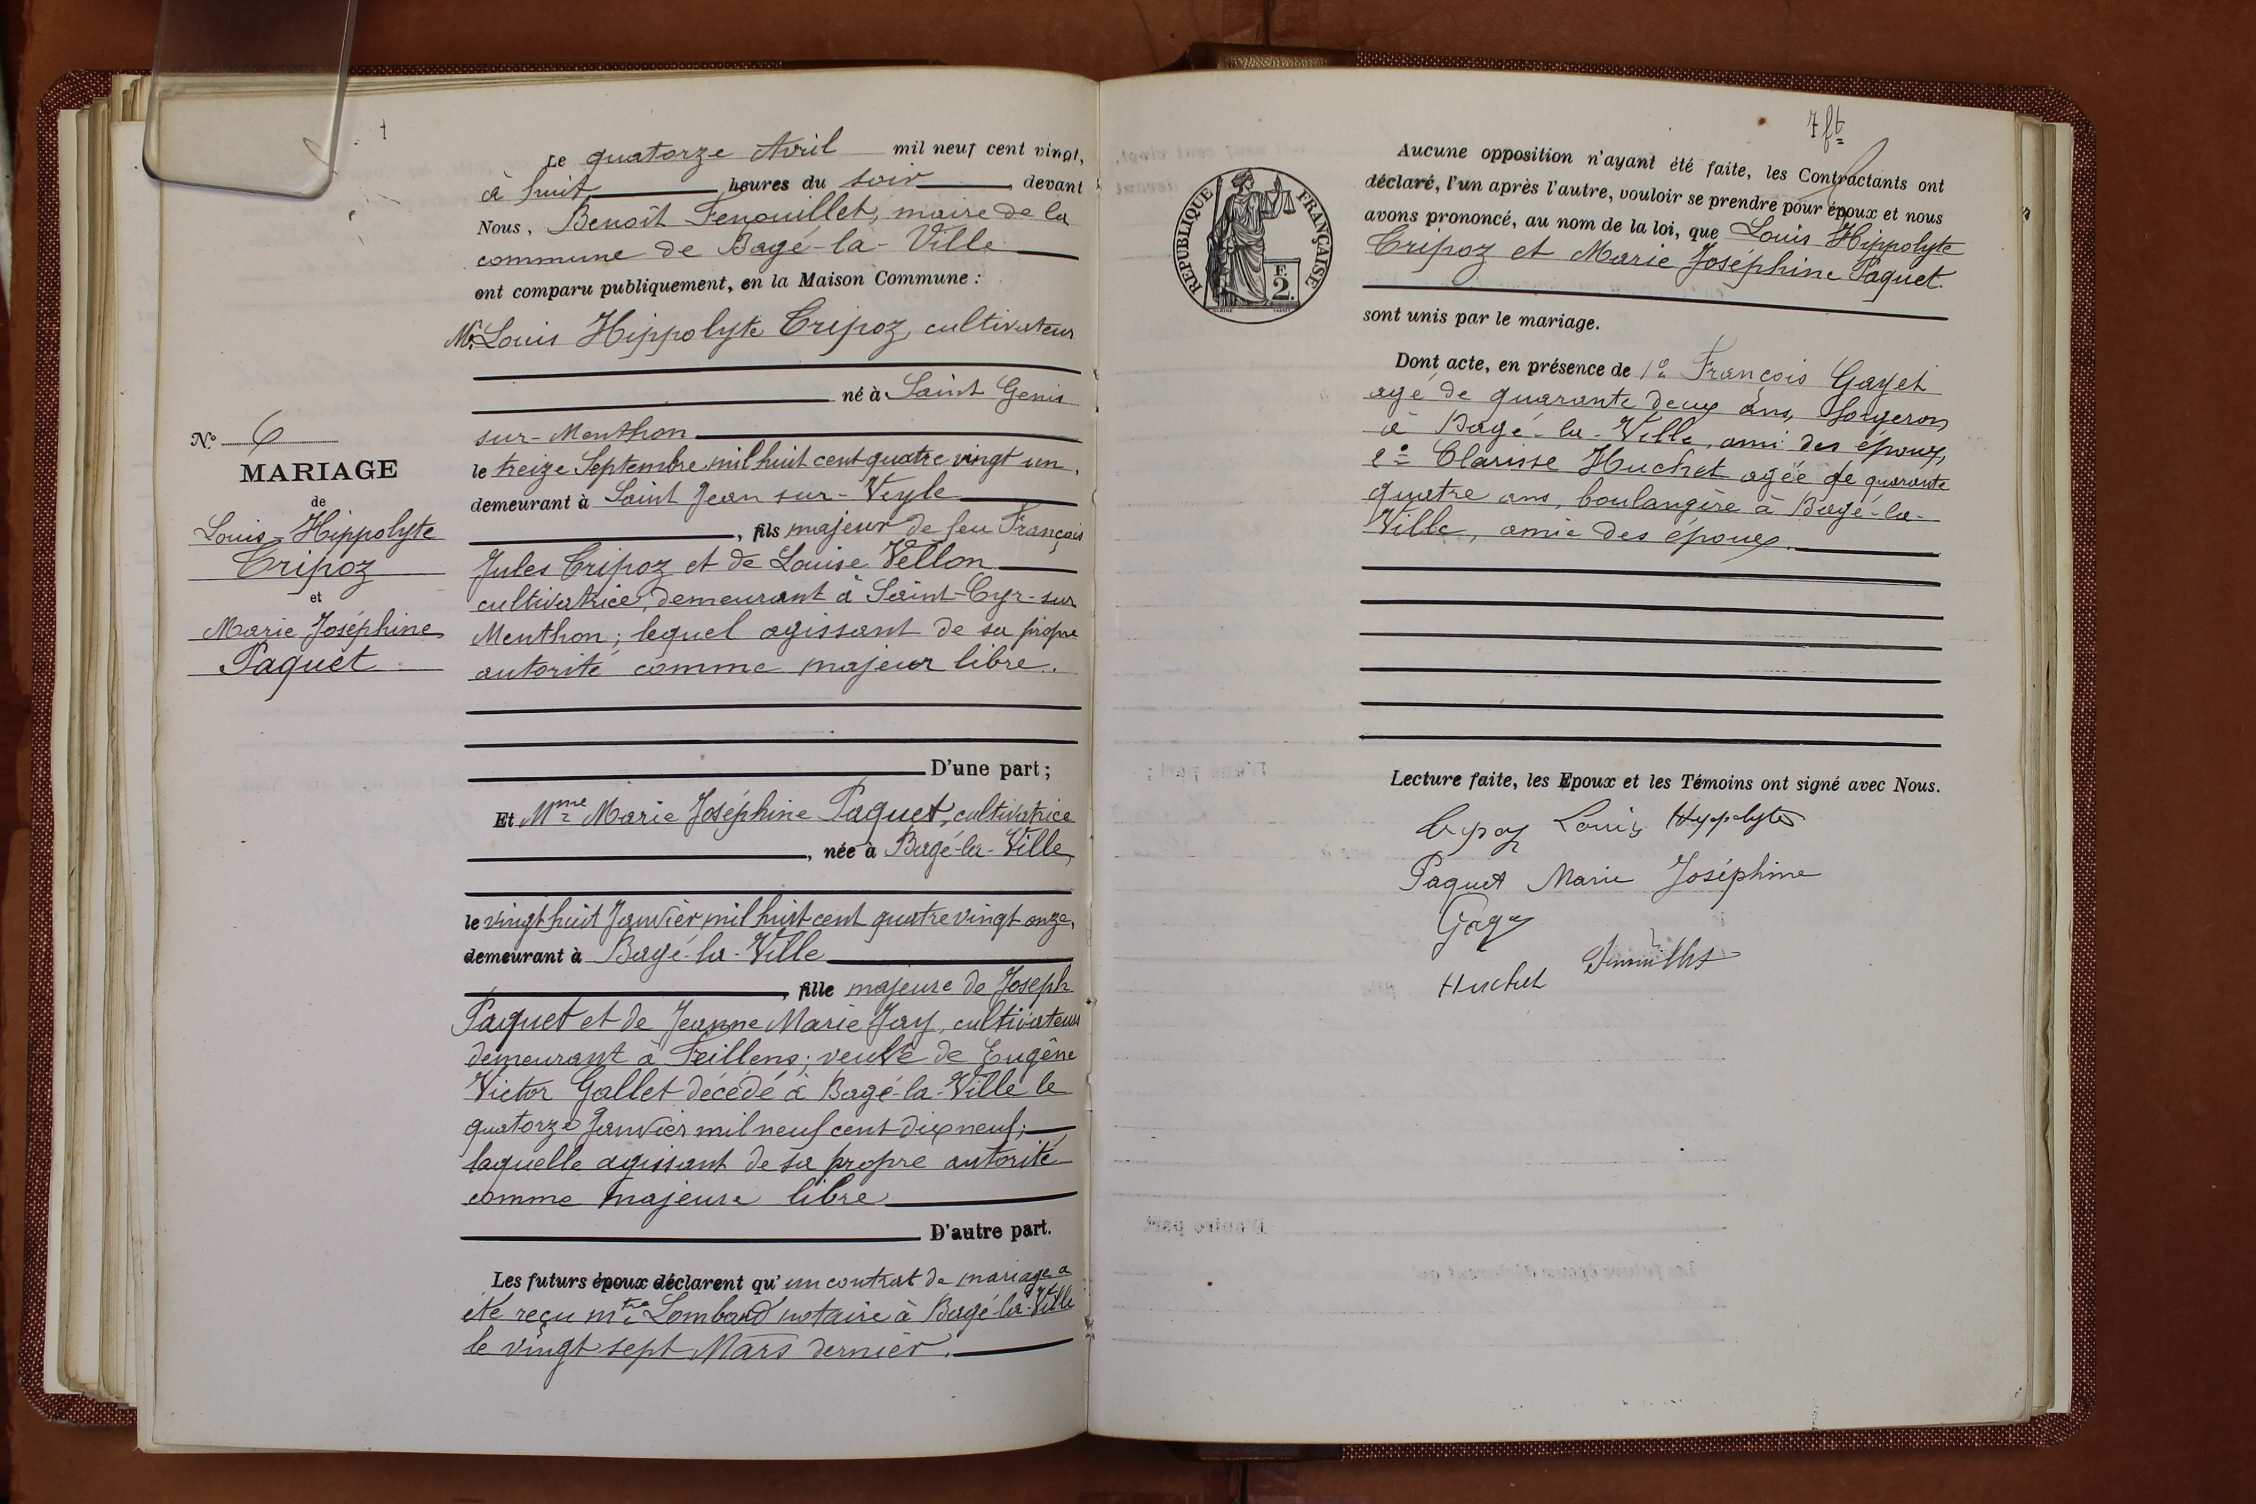 Le quatorze Avril mil neuf cent vingt,
à huit heures du soir, devant
Nous, Benoît Fenouillet, maire de la
commune de Bagé-la-Ville
ont comparu publiquement, en la Maison Commune :
Mr. Louis Hippolyte Tripoz, cultivateur
né à Saint Genis
sur-Menthon
le treize Septembre mil huit cent quatre vingt un,
demeurant à Saint Jean sur-Veyle
, fils majeur de feu François
Jules Tripoz et de Louise Vellon
cultivatrice, demeurant à Saint-Cyr-sur
Menthon; lequel agissant de sa propre
autorité comme majeur libre.
D'une part ;
Et Mme Marie Joséphine Paquet, cultivatrice
, née à Bagé-la-Ville,
le vingt huit Janvier mil huit cent quatre vingt onze,
demeurant à Bagé-la-Ville
, fille majeure de Joseph
Paquet et de Jeanne Marie Jay, cultivateurs
demeurant à Feillens; veuve de Eugène
Victor Gallet décédé à Bagé-la-Ville le
quatorze Janvier mil neuf cent dix neuf;
laquelle agissant de sa propre autorité
comme majeure libre
D'autre part.
Les futurs époux déclarent qu'un contrat de mariage a
été reçu mtre Lombard notaire à Bagé-la-Ville
le vingt sept Mars dernier.
N° 6
MARIAGE
de
Louis Hippolyte
Tripoz
et
Marie Joséphine
Paquet
7 ft
RÉPUBLIQUE FRANÇAISE
F.
2.
Aucune opposition n'ayant été faite, les Contractants ont
déclaré, l'un après l'autre, vouloir se prendre pour époux et nous
avons prononcé, au nom de la loi, que Louis Hippolyte
Tripoz et Marie Joséphine Paquet.
sont unis par le mariage.
Dont acte, en présence de 1° François Gayet
agé de quarante deux ans, forgeron
à Bagé-la-Ville, ami des époux,
2° Clarisse Huchet agée de quarante
quatre ans, boulangère à Bagé-la-
Ville, amie des époux.
Lecture faite, les Epoux et les Témoins ont signé avec Nous.
Louis Hyppolyte
Paquet Marie Joséphine
Huchet